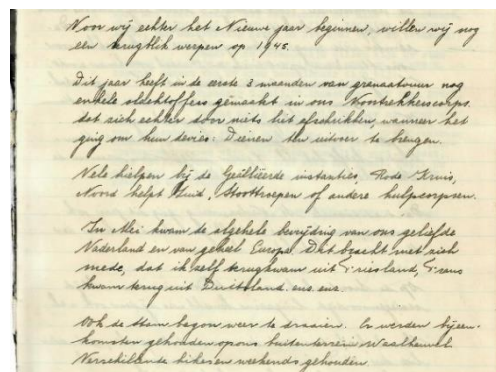 Voor wij echter het Nieuwe jaar beginnen, willen wij nog
een terugblik werpen op 1945.
Dit jaar heeft in de eerste 3 maanden van granaatvuur nog
enkele slachtoffers gemaakt in ons Voortrekkerscorps.
dat zich echter door niets liet afschrikken, wanneer het
ging om hun devies: Dienen ten uitvoer te brengen.
Vele hielpen bij de Geällieerde instanties, Rode Kruis,
Noord helpt Zuid, Stoottroepen of andere hulpcorpsen.
In Mei kwam de algehele bevrijding van ons geliefde
Nederland en van geheel Europa. Dit bracht met zich
mede, dat ik zelf terugkwam uit Friesland, Frens
kwam terug uit Duitsland. enz. enz.
Ook de Stam begon weer te draaien. Er werden bijeen-
komsten gehouden op ons buitenterrein
Verschillende hikes en weekends gehouden.